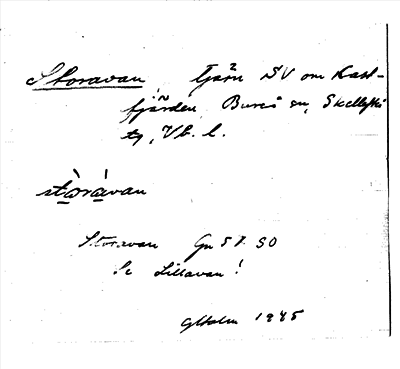 Storavan, Tjärn SV om Kast-
fjärden, Bureå sn, Skellefteå
tg, Vb. l.
stòrávan
Storavan Gn 57 SO
Se Lillavan!
GHolm 1945